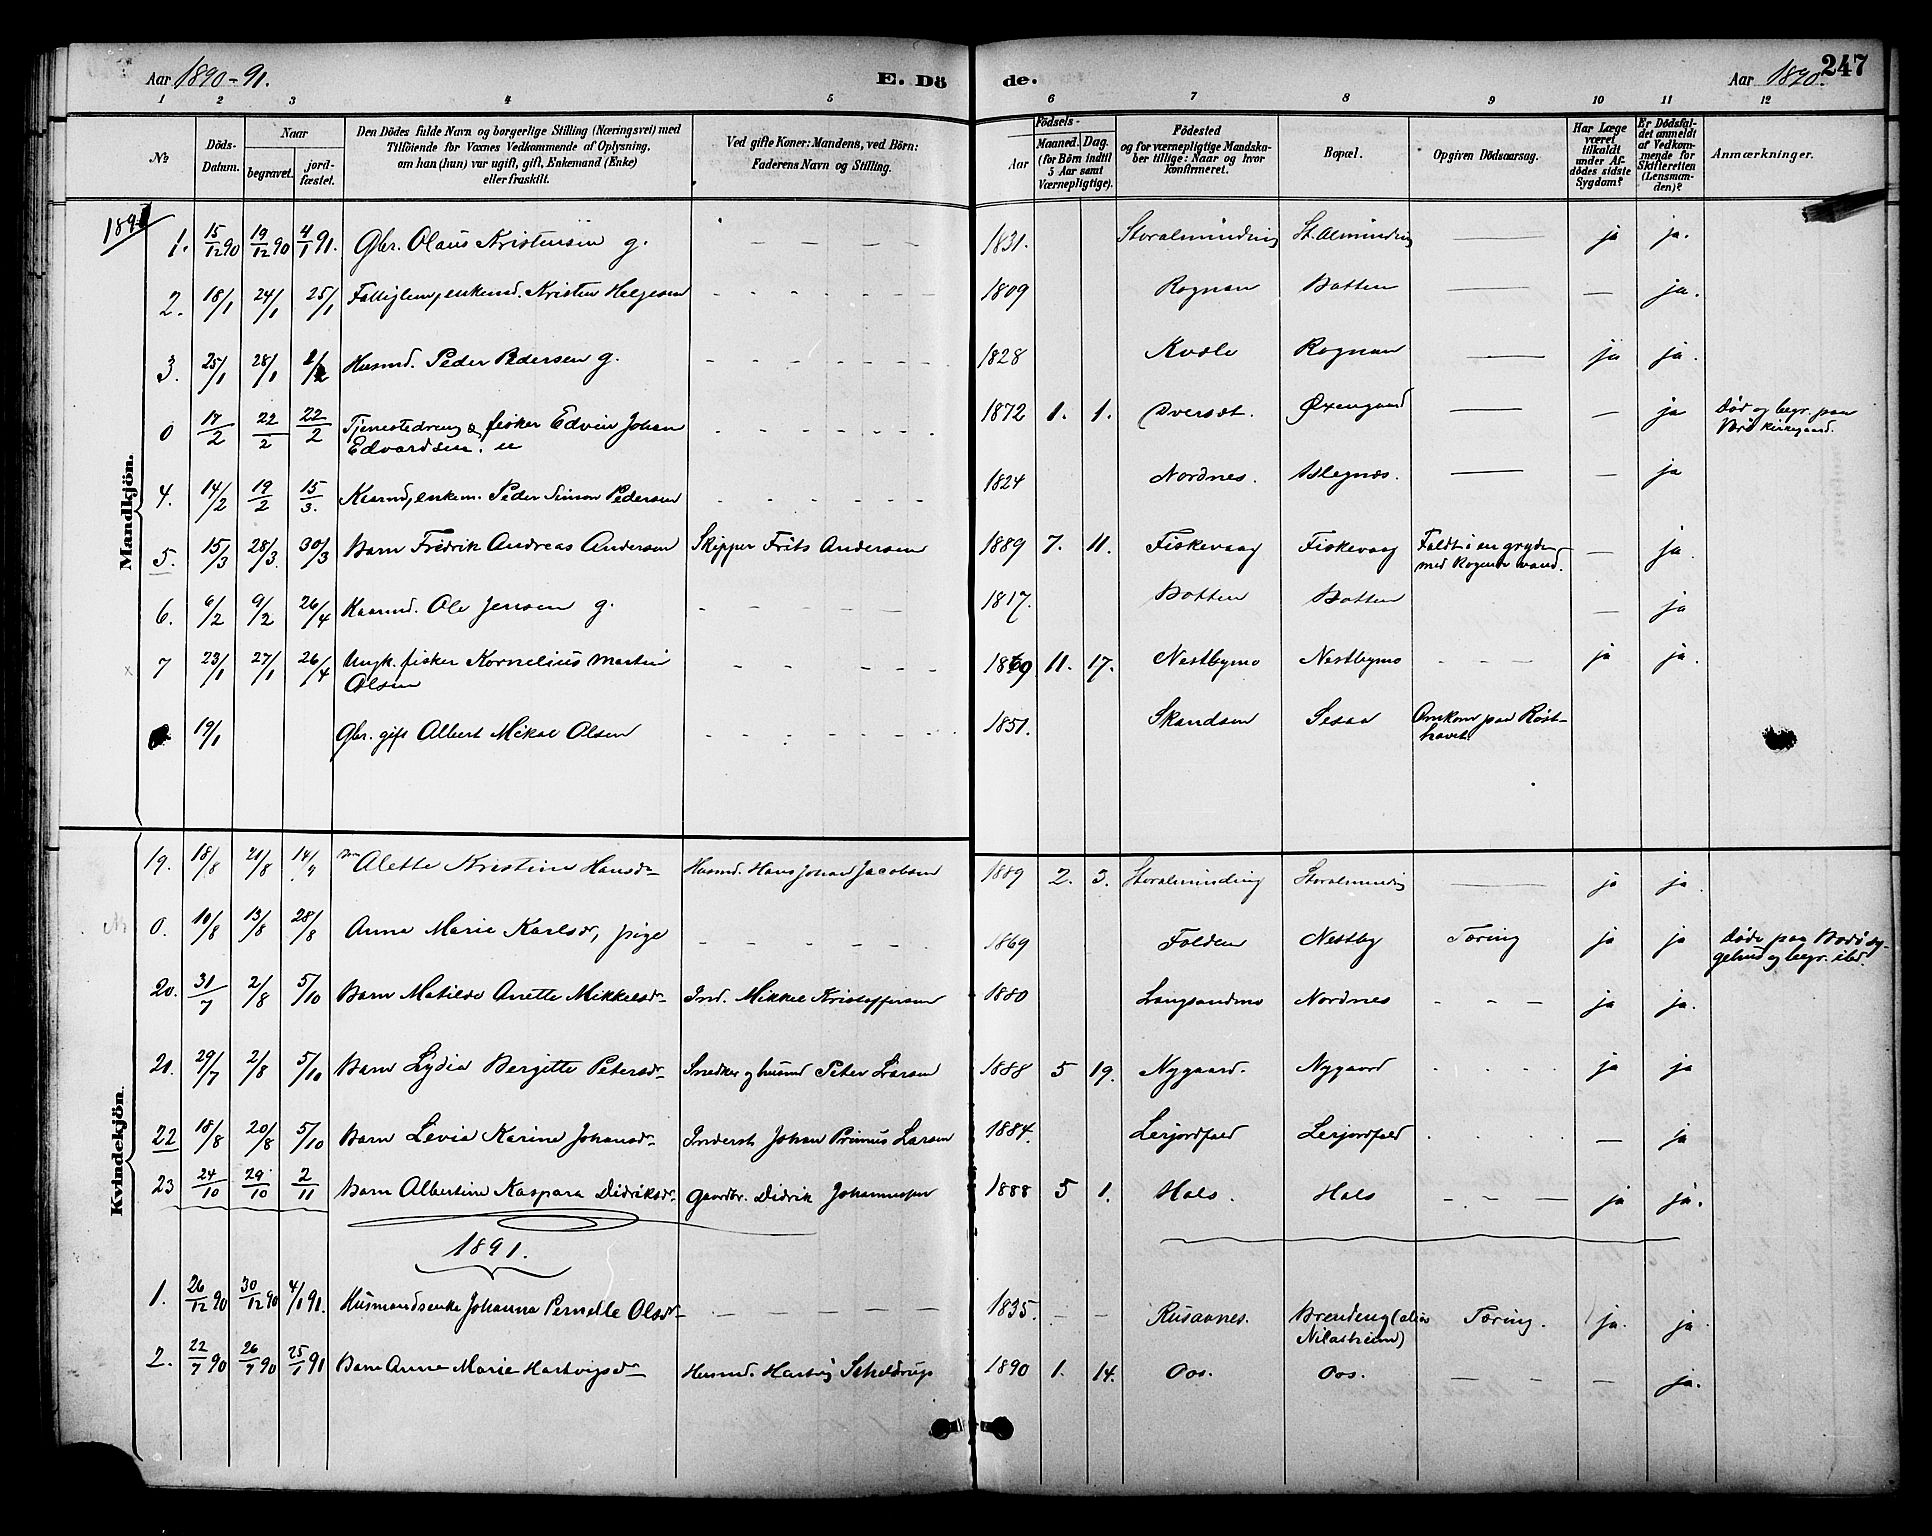 Aar 1890-91. E. Dö de. Aar 1890. 247
1 2 3 4 5 6 7 8 9 10 11 12
№
Döds-Datum.
Naar begravet. jordfæstet.
Den Dödes fulde Navn og borgerlige Stilling (Næringsvei) med
Tilföiende for Voxnes Vedkommende af Oplysning,
om han (hun) var ugift, gift, Enkemand (Enke)
eller fraskilt.
Ved gifte Koner: Mandens, ved Börn:
Faderens Navn og Stilling.
Födsels-
Aar
Maaned. Dag.
(for Börn indtil
5 Aar samt
Værnepligtige).
Födested
og for værnepligtige Mandskaber tillige: Naar og hvor
konfirmeret.
Bopæl.
Opgiven Dödsaarsag.
Har Læge
været
tilkaldt
under Afdödes sidste
Sygdom?
Er Dödsfaldet anmeldt
af Vedkommende for
Skifteretten
(Lensmanden)?
Anmærkninger.
Mandkjön.
1891
1. 15/12 90 19/12 90 4/1 91. Gbr. Olaus Kristensen g. – – – – – 1831. Storalminding St. Alminding — ja ja.
2. 18/1 24/1 25/1 enkemd. Kristen Helgesen – – – – – 1809 Rognan Botten — — ja.
3. 25/1 28/1 1/2 Husmd. Peder Pedersen g. – – – – – 1828 Kvæle Rognan — ja ja.
0 17/2 22/2 22/2 Tjenestedreng & fisker Edvin Johan
Edvardsen. u – – – – – 1872 1. 1. Øxengaard — — ja Död og begr. paa
Værö Kirkegaard.
4. 14/2 19/2 15/3. Kaarmd, enkem. Peder Simon Pedersen – – – – – 1824 Nordnes. — — ja
5. 15/3 28/3. 30/3 Barn Fredrik Andreas Andersen Skipper Frits Andersen 1889 7. 11. Fiskevaag Fiskevaag Faldt i en gryde
med Kogende vand. — ja.
6. 6/2 9/2 26/4 Kaarmd. Ole Jensen g. – – – – – 1817. Botten Botten — ja
7 23/1 27/1 26/4 Ungk. fisker Kornelius Martin
Olsen – – – – – 1869 11. 17. Nestbymo Nestbymo – – – ja ja.
19/1 Gbr. gift Albert Mikal Olsen – – – – – 1851. Skandsen Sesaa Omkom paa Röst-
havet.
Kvindekjön.
19. 18/8 21/8 14/9 Alette Kristine Hansdr Husmd. Hans Johan Jacobsen 1889 2. 3. Storalminding Storalminding — ja ja.
0. 10/8 13/8 28/8 Anna Marie Karlsdr, pige – – – – – 1869 Folden Nestby Tæring ja ja Döde paa Bodö sy-
gehus og begr. ibd.
20. 31/7 2/8 5/10 Barn Matilde Anette Mikkelsdr Ind. Mikkel Kristoffersen 1880 Langsandmo Nordnes – – – ja ja.
21. 29/7 2/8 5/10 Barn Lydia Bergitte Petersdr Snedker og husmd Peter Larsen 1888 5 19. Nygaard. Nygaard . . . . ja ja
22 18/8 20/8 5/10 Barn Levia Karine Johansdr Inderst Johan Primus Larsen 1884. Lerjordfald Lerjordfald . . . . — ja
23 24/10 29/10 2/11 Barn Albertine Kaspara Didriksdr. Gaardbr. Didrik Johannesen 1888 5 1. Hals. Hals – – – ja ja.
1891.
1. 26/12 90 30/12 90 4/1 91. Husmandsenke Johanna Pernelle Olsdr – – – – – 1835. – – Rusaanes. Brendeng (alias
Nilasheim) Tæring. ja. ja
2. 22/7 90 26/7 90 25/1 91 Barn Anne Marie Hartvigsdr Husmd. Hartvig Scheldrup 1890 1. 14. Oos. Oos. – – – – ja.